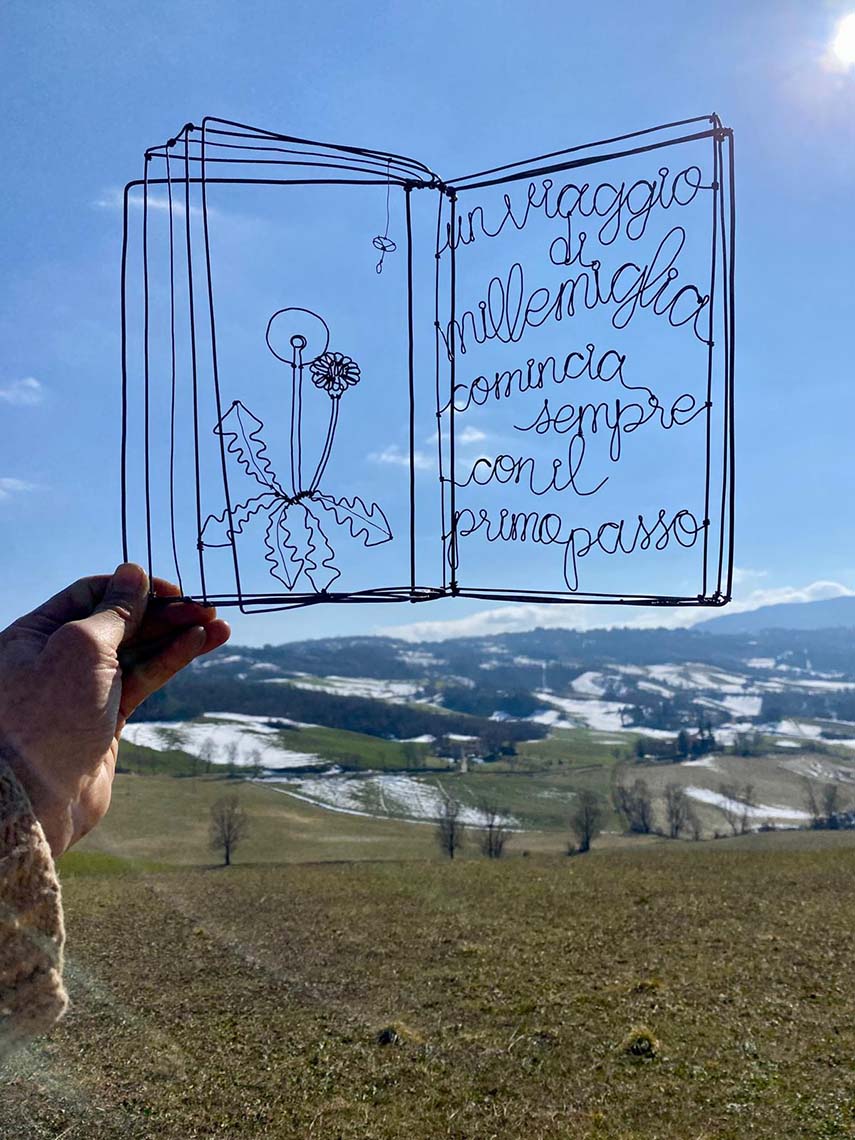 un viaggio
di
millemiglia
comincia
sempre
con il
primo passo